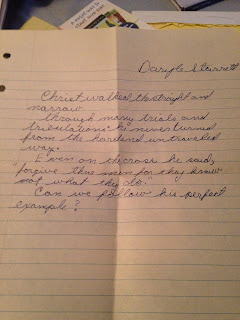 Daryle Starrett
Christ walked the straight and
narrow
through many trials and
tribulations he never turned
from the hardend untraveled
way.
"Even on the cross he said,
forgive this men for they know
not what they do."
Can we follow his perfect
example?